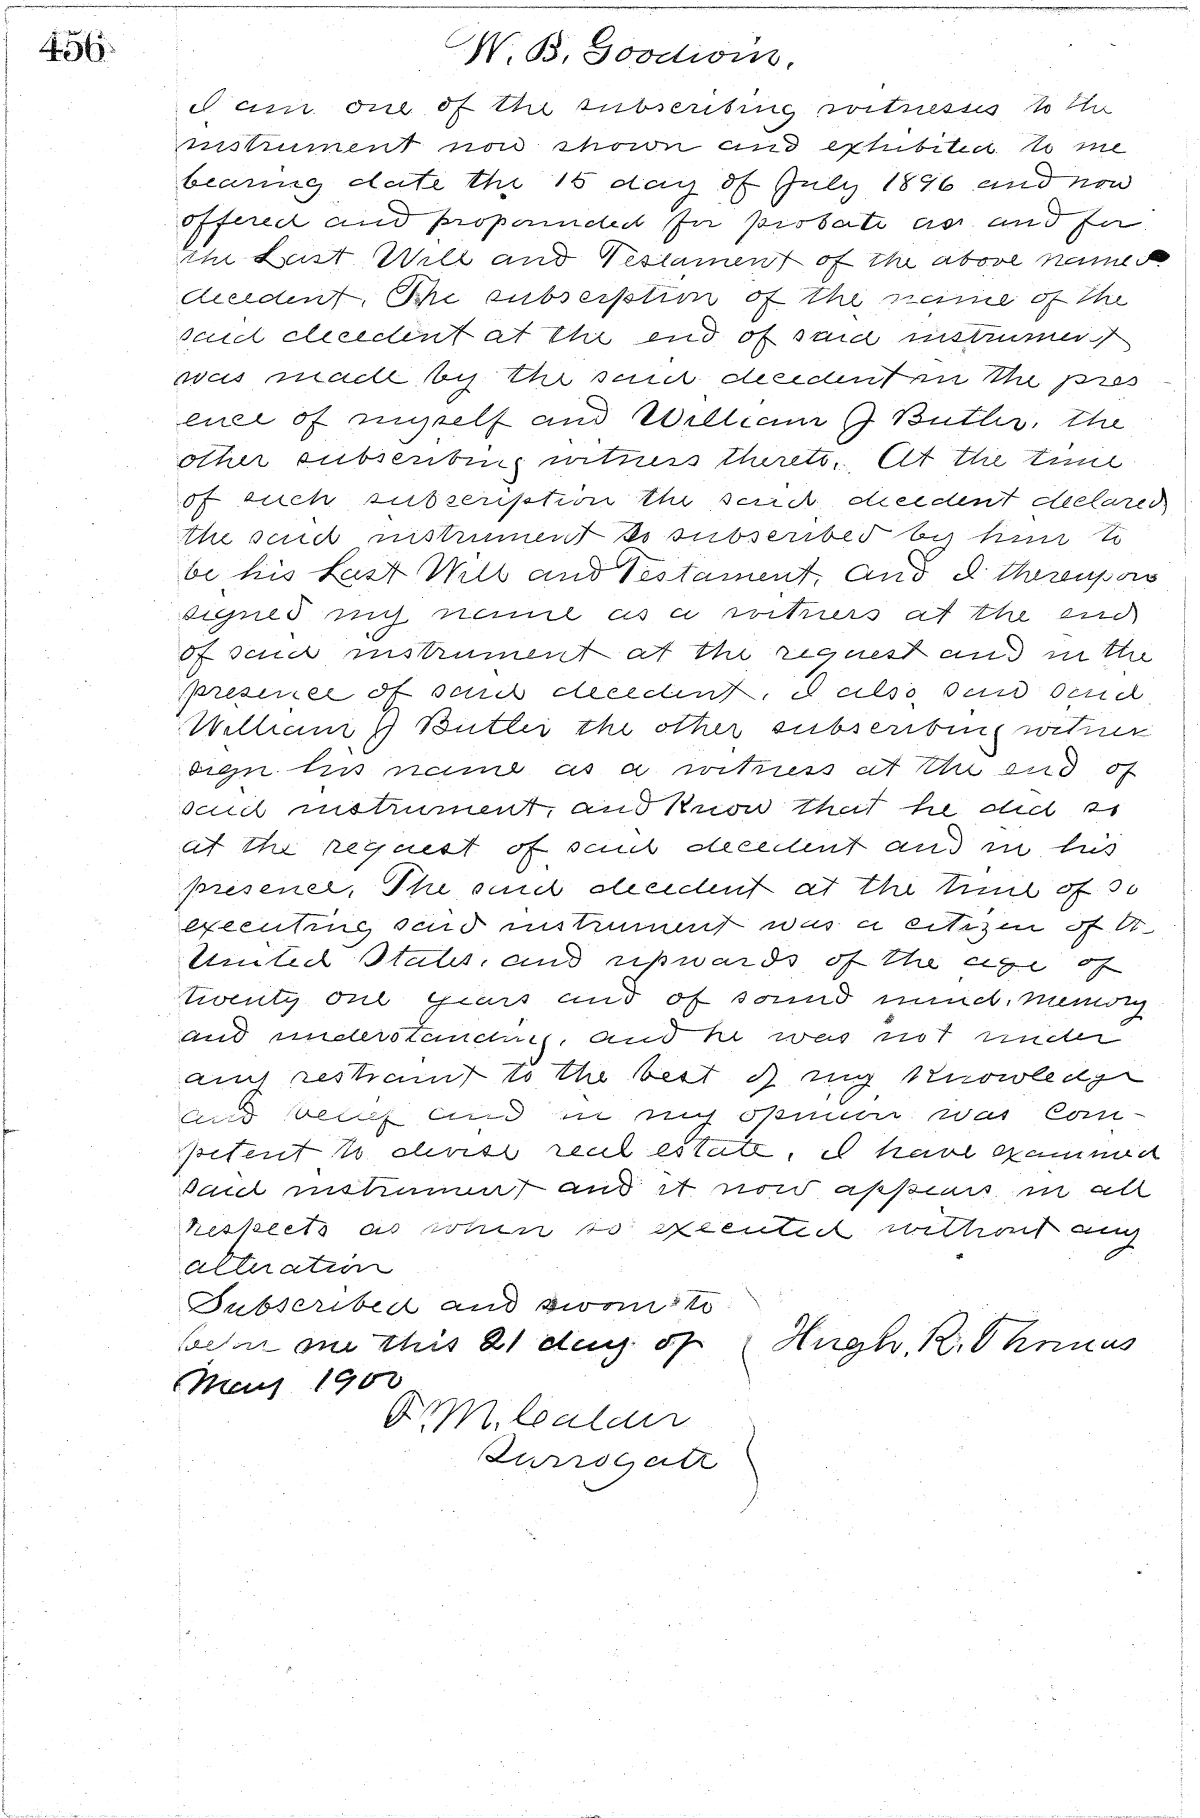 456
W. B. Goodwin.
I am one of the subscribing witnesses to the
instrument now shown and exhibited to me
bearing date the 15 day of July 1896 and now
offered and propounded for probate as and for
the Last Will and Testament of the above named
decedent. The subscription of the name of the
said decedent at the end of said instrument
was made by the said decedent in the pres
ence of myself and William J Butler, the
other subscribing witness thereto. At the time
of such subscription the said decedent declared
the said instrument so subscribed by him to
be his Last Will and Testament, and I thereupon
signed my name as a witness at the end
of said instrument at the request and in the
presence of said decedent. I also saw said
William J Butler the other subscribing witness
sign his name as a witness at the end of
said instrument, and Know that he did so
at the request of said decedent and in his
presence. The said decedent at the time of so
executing said instrument was a citizen of the
United States, and upwards of the age of
twenty one years and of sound mind, memory
and understanding, and he was not under
any restraint to the best of my Knowledge
and belief and in my opinion was Com-
petent to devise real estate. I have examined
said instrument and it now appears in all
respects as when so executed without any
alteration
Subscribed and sworn to
before me this 21 day of Hugh. R. Thomas
May 1900
M. Calder
Surrogate